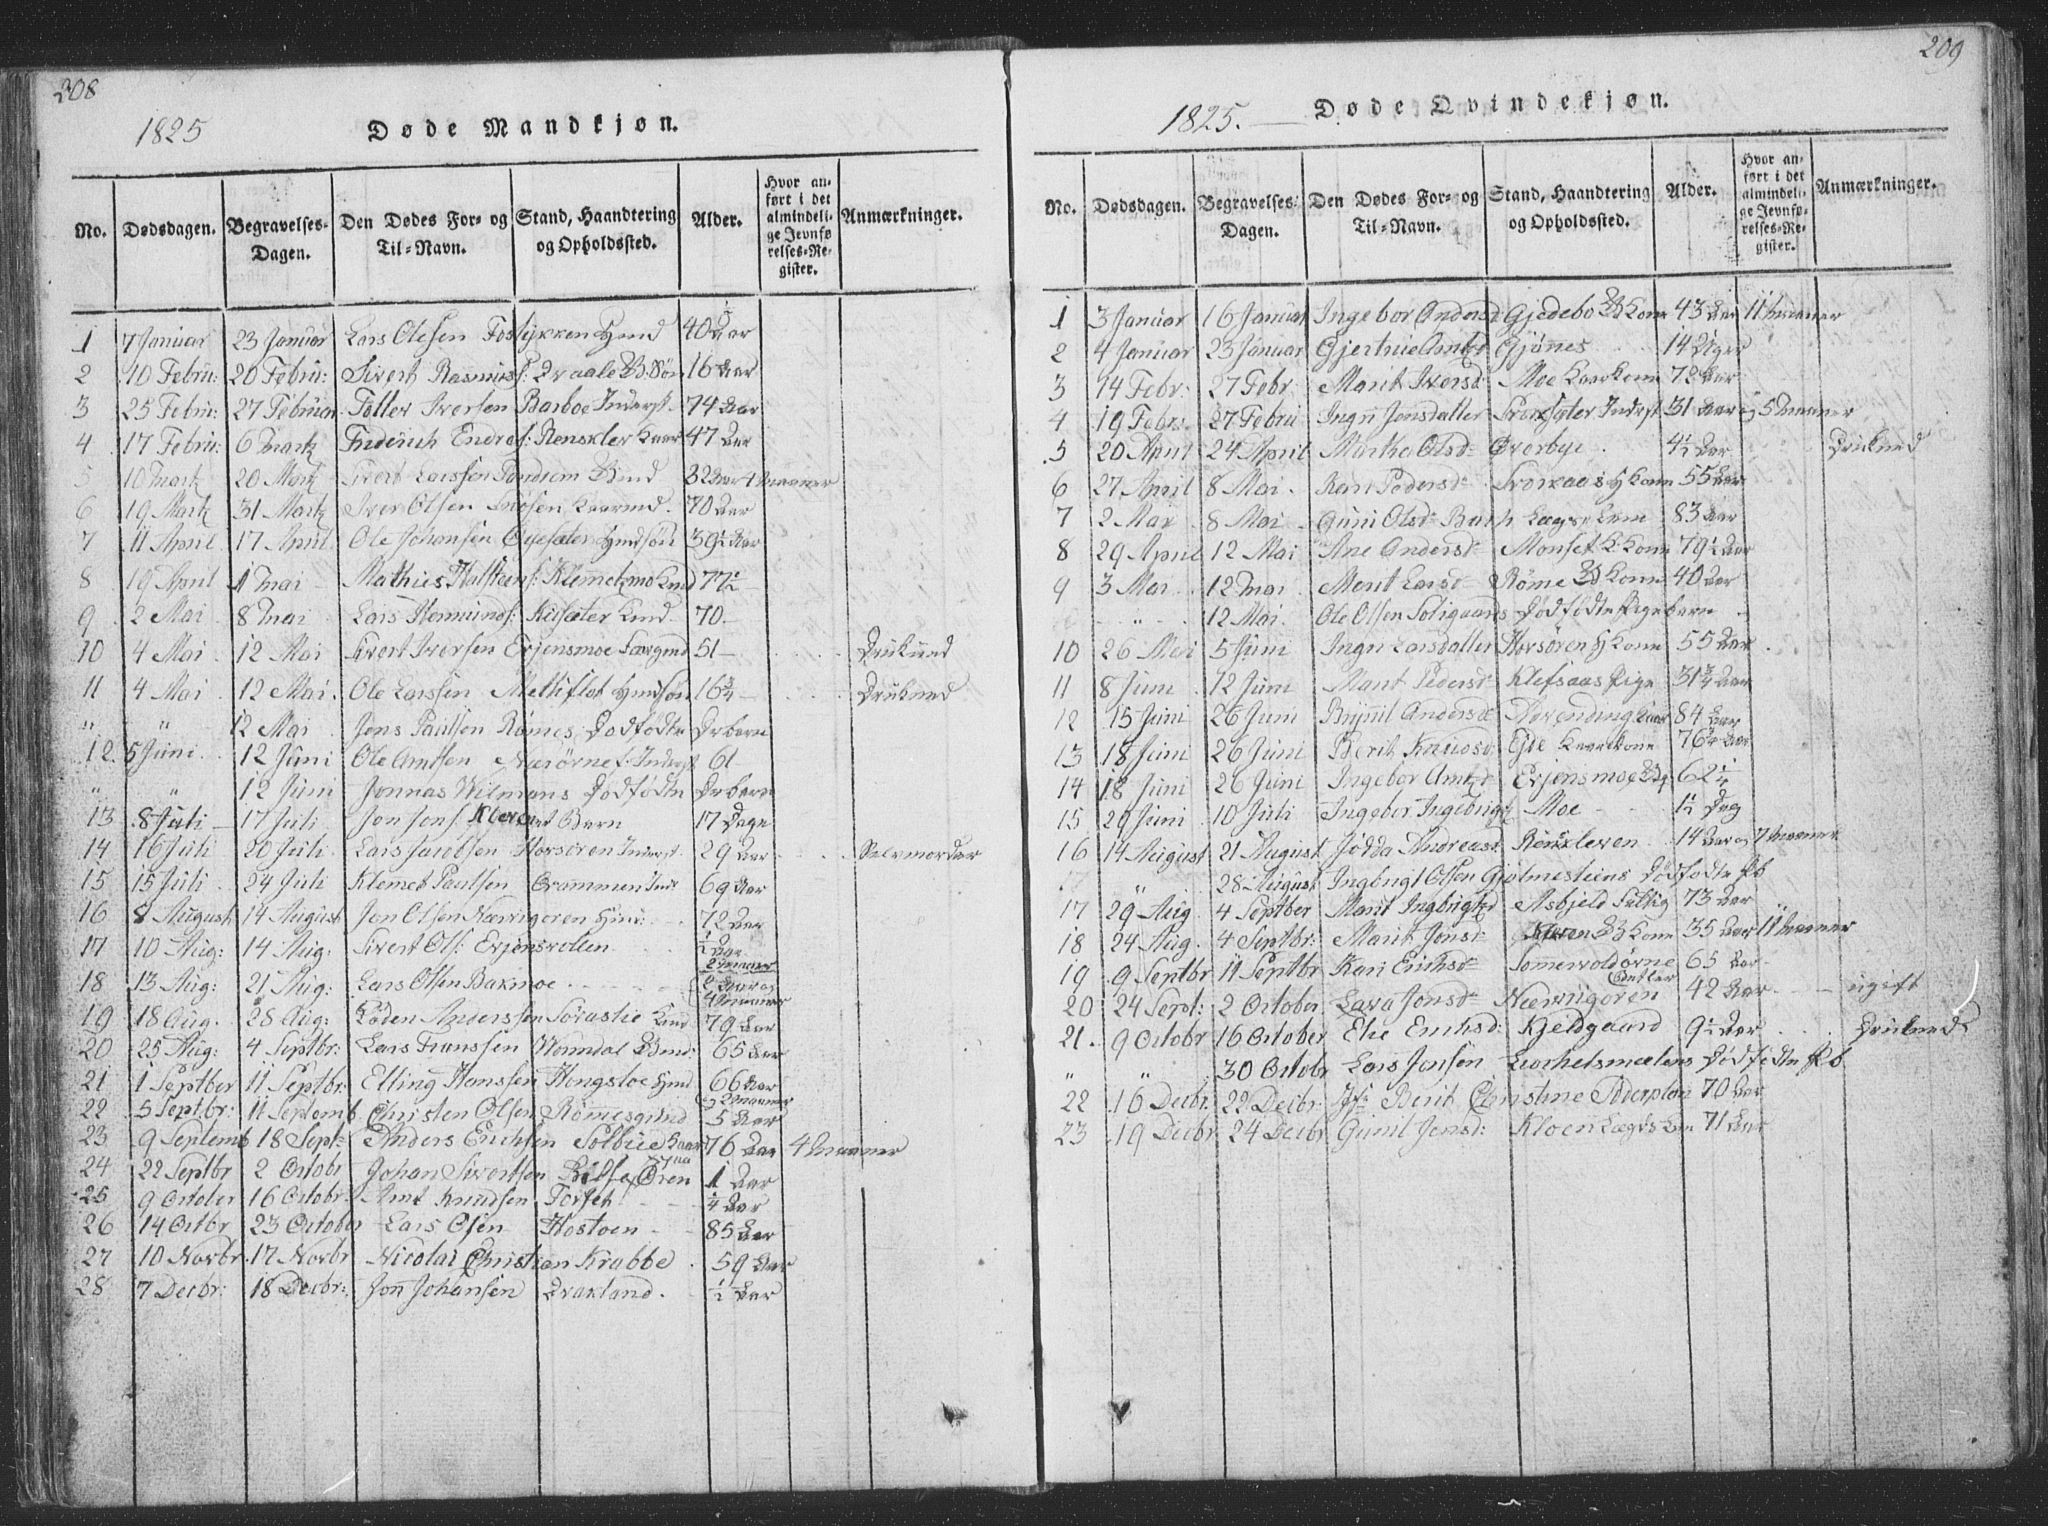 208
1825 Døde Mandkjøn.
No. Dødsdagen. Begravelses-Dagen. Den Dødes For- og Til-Navn. Stand, Haandtering og Opholdssted. Alder. Hvor anført i det almindelige Jevnførelses-Register. Anmærkninger.
1 7 Januar 23 Januar Lars Olesen 40 Aar
2 10 Febru: 20 Febru: Sivert Rasmusf: Qvaale B:Søn 16 Aar
3 25 Febru: 27 Februar Toller Iversen Barboe Inderst 74 Aar
4 17 Febru: 6 Martz Endref: Renskler 47 Aar
5 10 Martz 20 Martz Sivert Larssen 32 Aar 4 Maaner
6 19 Martz 31 Martz Iver Olsen 70 Aar
7 11 April 17 April Ole Johansen Øyesæter Hmdsøn 39½ Aar
8 19 April 1 Mai Mathies Halsteens: Klemetzmo 77½
9 2 Mai 8 Mai Lars 70
10 4 Mai 12 Mai Sivert Iversen Erjensmoe 51 Druknd
11 4 Mai 12 Mai Ole Larssen Melliflot Hmdsøn 16¾ Druknd
" " 12 Mai Jens Paulsen Rømes Dødfødte Drbarn
12 5 Juni 12 Juni Ole Amtsen 61
" " 12 Juni Jonnas Wilmans Dødfødte Drbarn
13 8 Juli 17 Juli Jon Jonf Barn 17 Dage
14 16 Juli 20 Juli Lars Jacobsen Horsøren Inderst 29 Aar Selvmorder
15 15 Juli 24 Juli Klemet Paulsen Grammen 69 Aar
16 8 August 14 August Jon Olsen Nævrigoren 72 Aar
17 10 Aug: 14 Aug: Sivert Ols: Erjensvolen ½ Aar
18 13 Aug: 21 Aug: Lars Olsen Bakmoe 4 Maaner
19 18 Aug. 28 Aug: Anderssen 79 Aar
20 25 Aug: 4 Septbr: Lars Franssen 65 Aar
21 1 Septber 11 Septbr: Elling Hanssen Hongsloe Hmd 66 Aar
22 5 Septbr: 11 Septemb Christen Olsen Rømesgrind 5 Aar
23 9 Septemb 18 Sept: Anders Erichsen Solbue 76 Aar 4 Maaner
24 22 Septbr 2 Octobr Johan Sivertsen 1 Aar
25 9 October 16 Octobr: Amt Knudsen Forseth ¼ Aar
26 14 Octbr 23 October Lars Olsen Hostoen 85 Aar
27 10 Novbr. 17 Novbr Nicolai Christian Krabbe 59 Aar
28 7 Decbr: 18 Decbr: Jon Johansen Qvakland. ½ Aar
209
1825. Døde Qvindekjøn.
No. Dødsdagen. Begravelses-Dagen. Den Dødes For- og Til-Navn. Stand, Haandtering og Opholdssted. Alder. Hvor anført i det almindelige Jevnførelses-Register. Anmærkninger.
1 3 Januar 16 Januar Ingebor Andersd Gjedebo B Kone 43 Aar 11 Maaner
2 4 Januar 23 Januar Gjertrue Amtzd Gjønnes 14 Uger
3 14 Febr: 27 Febr: Marit Iversd Moe Kaarkone 72 Aar
4 19 Febr: 27 Febru Ingri Jonsdatter Inderst 31 Aar og 5 Maaner
5 20 April 24 April Martha Olsd: Øverbye 4½ Aar Druknd
6 27 April 8 Mai Kari Pedersd Svorkaas H Kone 55 Aar
7 2 Mai 8 Mai Guni Olsd: Bach Lægs Lem 83 Aar
8 29 April 12 Mai Ane Andersd Monset K.Kone 79½ Aar
9 3 Mai 12 Mai Marit Larsd Rome B Kone 40 Aar
" 12 Mai Ole Olsen Soligaards Dødfødte Pigebarn
10 26 Mai 5 Juni Ingri Larsdatter Horsøren H Kone 55 Aar
11 8 Juni 12 Juni Marit Pedersd Klefsaas Pige 31¾ Aar
12 15 Juni 26 Juni Brynnil Andersd 84 Aar
13 18 Juni 26 Juni Berit Knudsd Kaarkone 76¼ Aar
14 18 Juni 26 Juni Ingebor Amtzd Erjensmoe 62¼
15 29 Juni 10 Juli Ingebor Ingebrigtz Moe 1½ Dag
16 14 August 21 August Jødda Andreasd Renskleven 14 Aar og 7 Maaner
" 28 August Ingbrigt Olsen Gjølmesliens Dødfødte Pb
17 29 Aug. 4 Septber Marit Ingbrigtzd Asbjeld 73 Aar
18 24 Aug. 4 Septbr: Marit Jonsd B Kone 35 Aar 11 Maaner
19 9 Septbr 11 Septbr Kari Erichsd Sommervoldørne 65 Aar
20 24 Sept: 2 October Lava Jonsd Nævrigoren 42 Aar ugift
21. 9 Octobr 16 October Elie Erichsd: Kjeldgaard 9½ Aar Druknd
" " 30 Octobr Lars Jonsen Dødfødte Pb
22 16 Decbr: 22 Decbr: Jfr: Berit Christine 70 Aar
23 19 Decbr 24 Decbr Gunil Jonsd: Kloen Lægds Lem 71 Aar